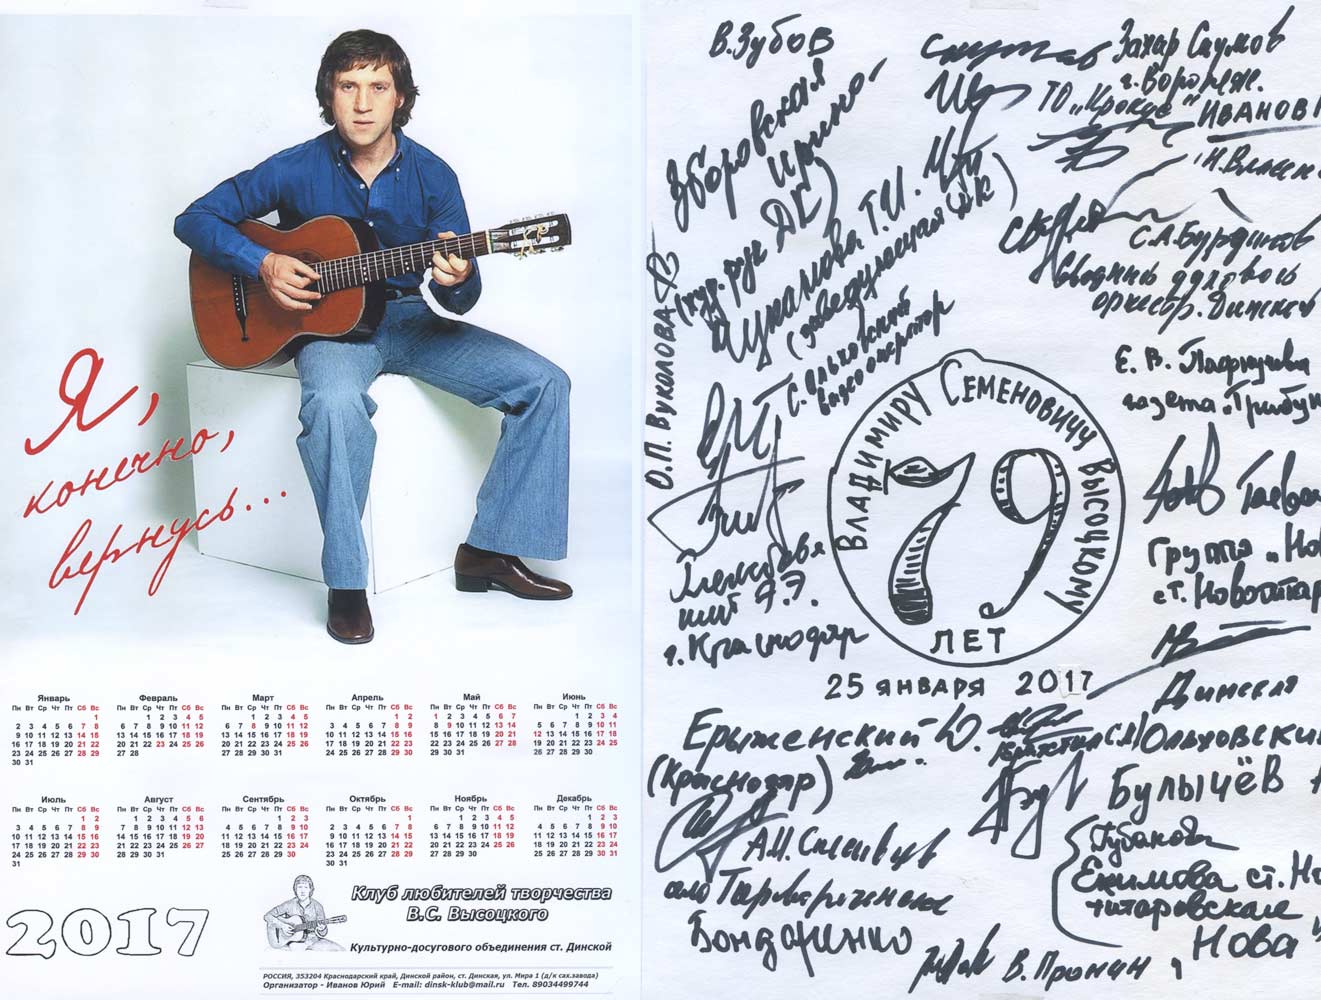 Я,
конечно,
вернусь...
Январь
Пн Вт Ср Чт Пт Сб Вс
1
2 3 4 5 6 7 8
9 10 11 12 13 14 15
16 17 18 19 20 21 22
23 24 25 26 27 28 29
30 31
Февраль
Пн Вт Ср Чт Пт Сб Вс
1 2 3 4 5
6 7 8 9 10 11 12
13 14 15 16 17 18 19
20 21 22 23 24 25 26
27 28
Март
Пн Вт Ср Чт Пт Сб Вс
1 2 3 4 5
6 7 8 9 10 11 12
13 14 15 16 17 18 19
20 21 22 23 24 25 26
27 28 29 30 31
Апрель
Пн Вт Ср Чт Пт Сб Вс
1 2
3 4 5 6 7 8 9
10 11 12 13 14 15 16
17 18 19 20 21 22 23
24 25 26 27 28 29 30
Май
Пн Вт Ср Чт Пт Сб Вс
1 2 3 4 5 6 7
8 9 10 11 12 13 14
15 16 17 18 19 20 21
22 23 24 25 26 27 28
29 30 31
Июнь
Пн Вт Ср Чт Пт Сб Вс
1 2 3 4
5 6 7 8 9 10 11
12 13 14 15 16 17 18
19 20 21 22 23 24 25
26 27 28 29 30
Июль
Пн Вт Ср Чт Пт Сб Вс
1 2
3 4 5 6 7 8 9
10 11 12 13 14 15 16
17 18 19 20 21 22 23
24 25 26 27 28 29 30
31
Август
Пн Вт Ср Чт Пт Сб Вс
1 2 3 4 5 6
7 8 9 10 11 12 13
14 15 16 17 18 19 20
21 22 23 24 25 26 27
28 29 30 31
Сентябрь
Пн Вт Ср Чт Пт Сб Вс
1 2 3
4 5 6 7 8 9 10
11 12 13 14 15 16 17
18 19 20 21 22 23 24
25 26 27 28 29 30
Октябрь
Пн Вт Ср Чт Пт Сб Вс
1
2 3 4 5 6 7 8
9 10 11 12 13 14 15
16 17 18 19 20 21 22
23 24 25 26 27 28 29
30 31
Ноябрь
Пн Вт Ср Чт Пт Сб Вс
1 2 3 4 5
6 7 8 9 10 11 12
13 14 15 16 17 18 19
20 21 22 23 24 25 26
27 28 29 30
Декабрь
Пн Вт Ср Чт Пт Сб Вс
1 2 3
4 5 6 7 8 9 10
11 12 13 14 15 16 17
18 19 20 21 22 23 24
25 26 27 28 29 30 31
2017
Клуб любителей творчества
В.С. Высоцкого
Культурно-досугового объединения ст. Динской
РОССИЯ, 353204 Краснодарский край, Динской район, ст. Динская, ул. Мира 1 (д/к сах.завода)
Организатор - Иванов Юрий E-mail: dinsk-klub@mail.ru Тел. 89034499744
В.Зубов
Захар Саумов
г. Воронеж.
ТО „Крокус"
Иванов
Зборовская
Ирина
(худ. рук ДК)
Т.И.
(заведующая ДК)
С. Ольховский
видеооператор
О.П. Вуколова
духового
оркестр.
Е. В.
газета „Трибун
Владимиру Семеновичу Высоцкому
79
лет
25 января 2017
г. Краснодар
Группа „Но
ст. Новотитар
Динская
Ерыженский Ю.
(Краснодар)
Ольховский
Булычёв
А.И.
село
Бондаренко
Губанова
Екимова ст. Но
титаровская
Нова"
В. Пронин